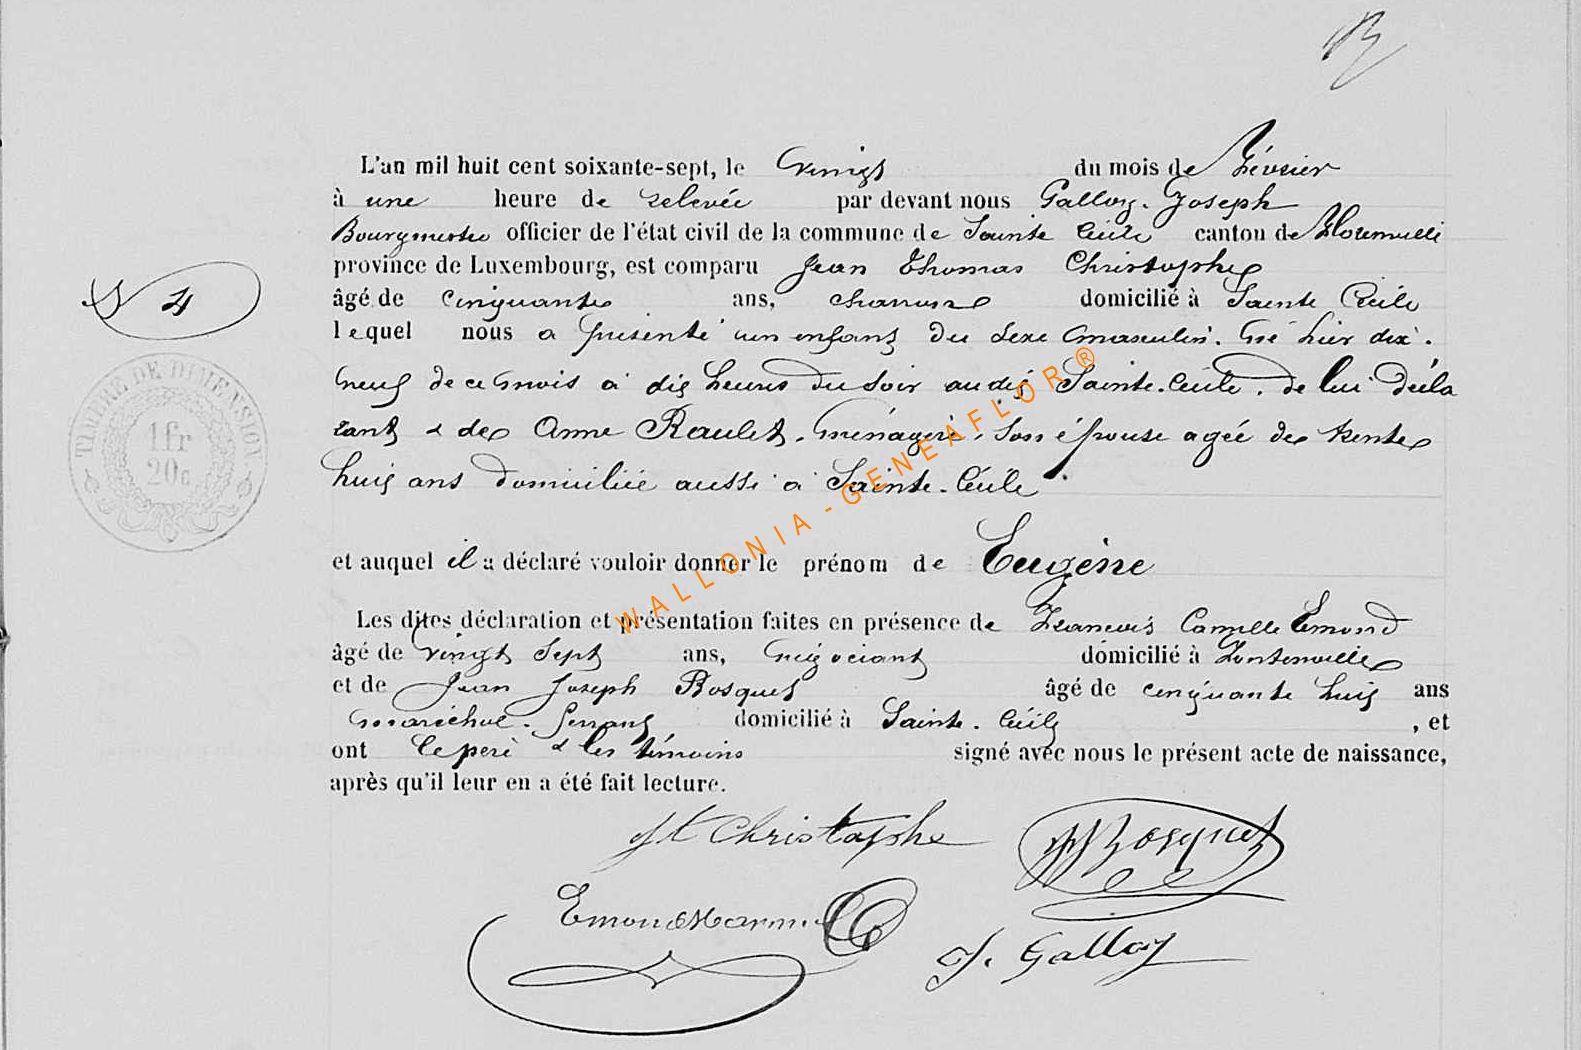 L'an mil huit cent soixante-sept, le vingt du mois de Février
à une heure de relevée par devant nous Galloy Joseph
Bourgmestre officier de l'état civil de la commune de Sainte Cécile canton de Florenville
province de Luxembourg, est comparu Jean Thomas Christophe
âgé de cinquante ans, charron domicilié à Sainte Cécile
lequel nous a présenté un enfant du sexe masculin. né hier dix-
neuf de ce mois à dix heures du soir au dit Sainte-Cécile. de lui décla
rant & de Anne Raulet. ménagère. son épouse agée de trente
huit ans domiciliée aussi à Sainte-Cécile.
N 4
TIMBRE DE DIMENSION
1fr
20c
et auquel il a déclaré vouloir donner le prénom de Eugène
Les dites déclaration et présentation faites en présence de François Camille Emond
âgé de vingt sept ans, négociant domicilié à Fontenoille
et de Jean Joseph Bosquet âgé de cinquante huit ans
maréchal-ferrant domicilié à Sainte-Cécile, et
ont le père & les témoins signé avec nous le présent acte de naissance,
après qu'il leur en a été fait lecture.
Jt Christophe JJ Bosquet
Emond
J. Galloy
WALLONIA-GENEAFLOR®